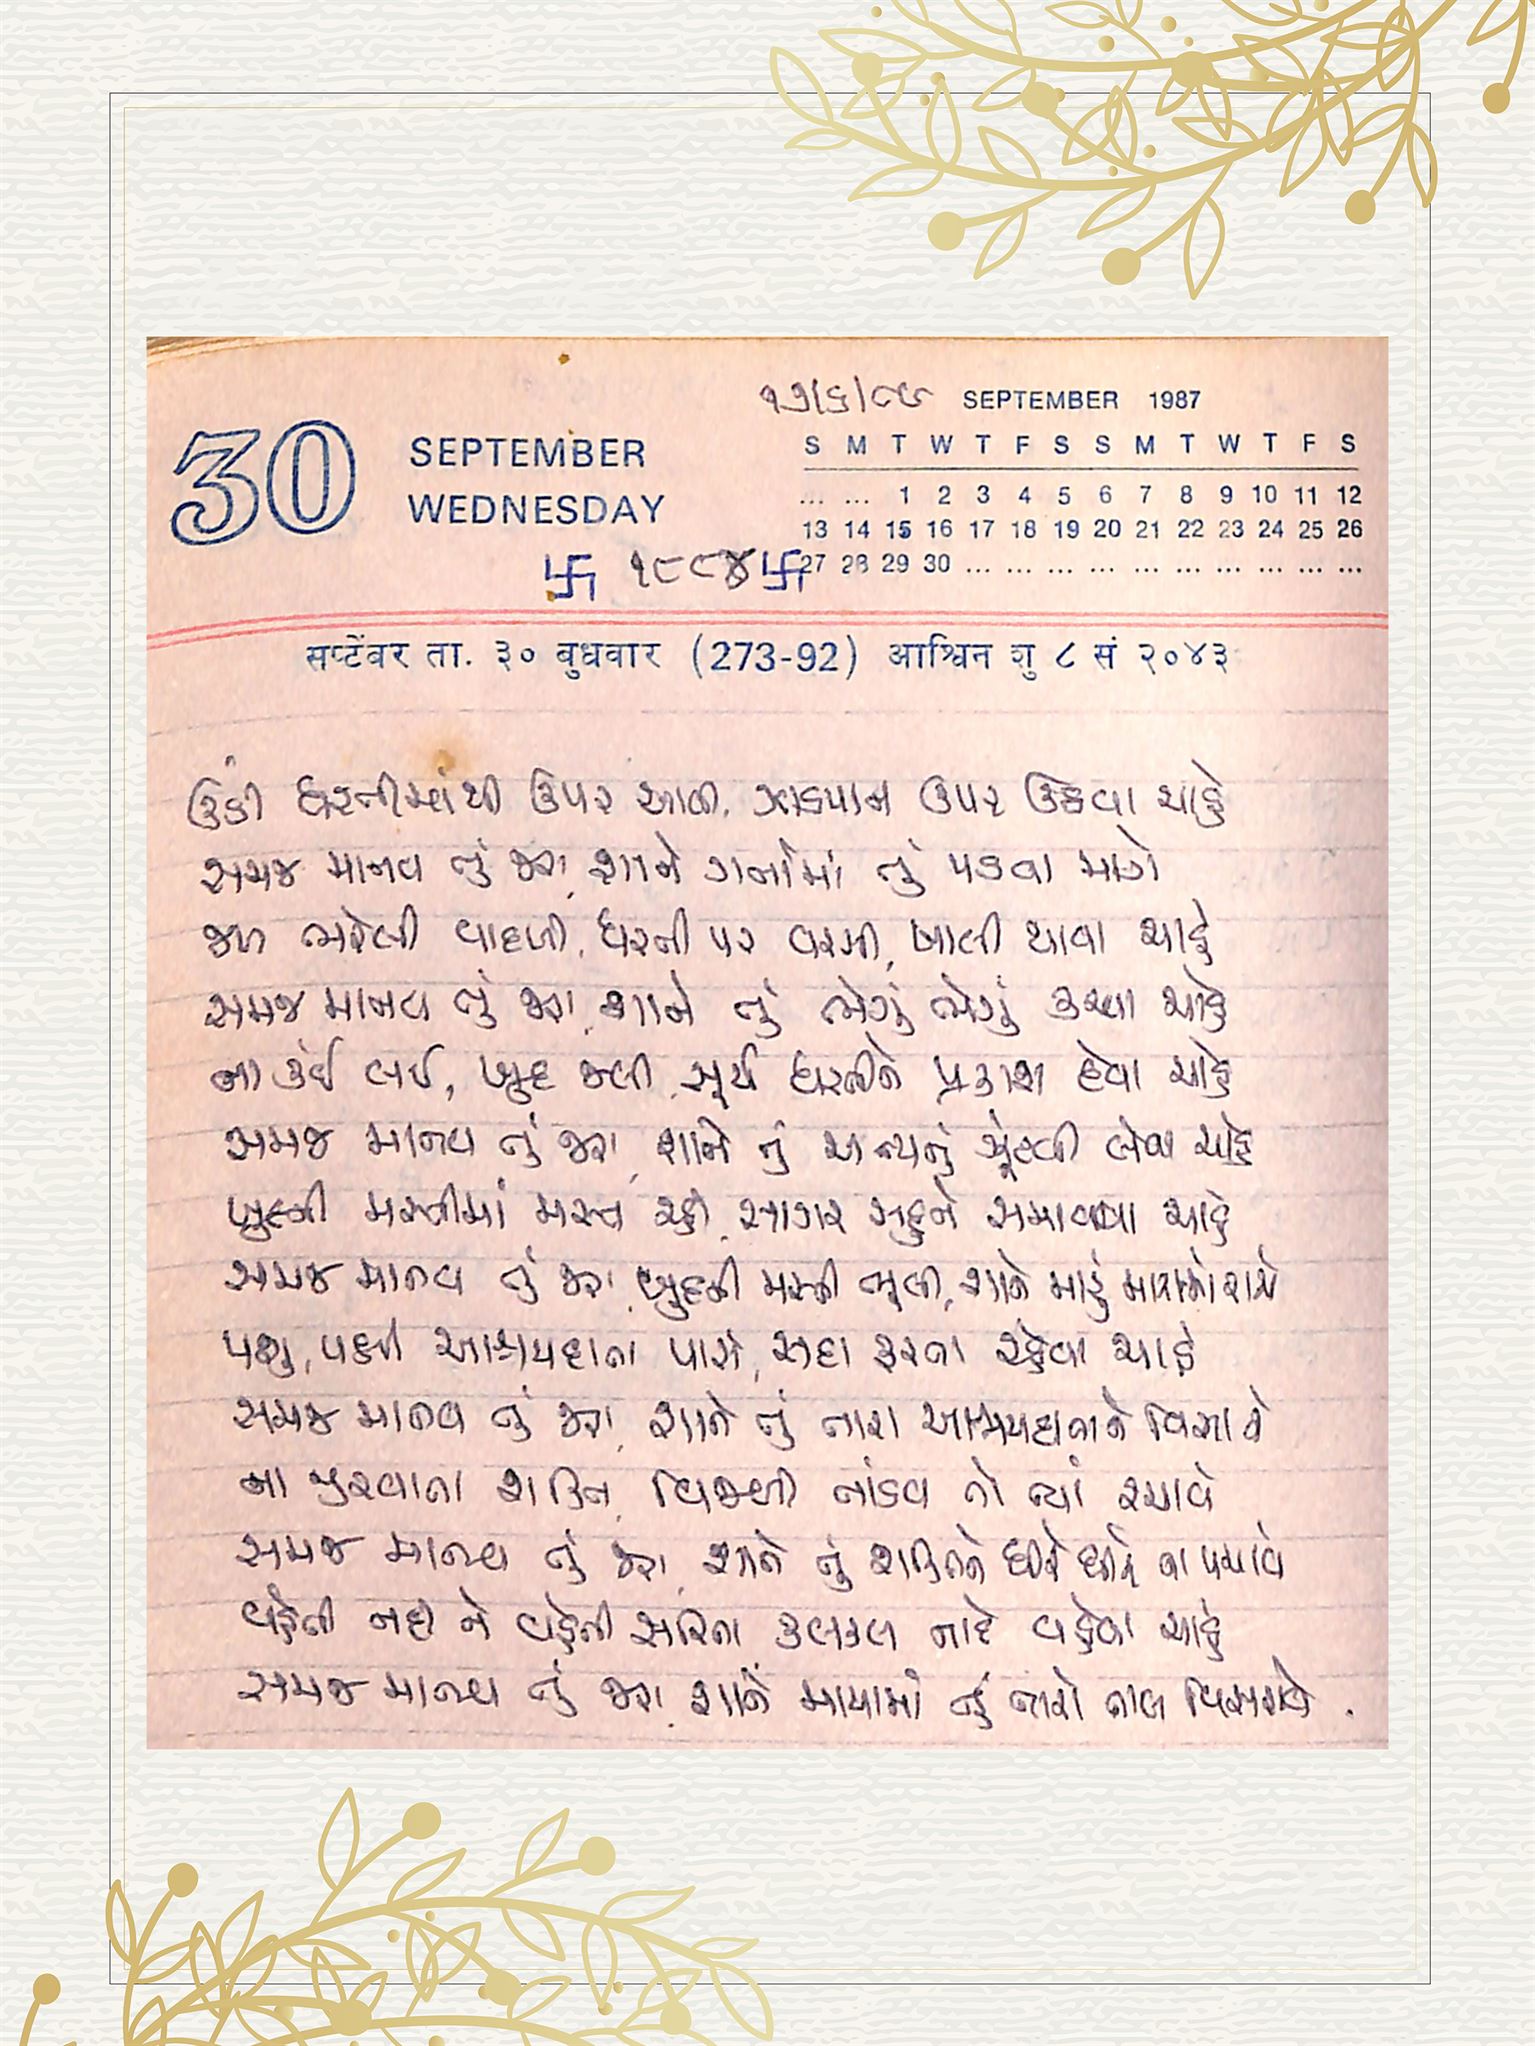 ૧૭/૬/૮૯ SEPTEMBER 1987
30 SEPTEMBER
WEDNESDAY
S M T W T F S S M T W T F S
... ... 1 2 3 4 5 6 7 8 9 10 11 12
13 14 15 16 17 18 19 20 21 22 23 24 25 26
27 28 29 30 ... ... ... ... ... ... ... ... ... ...
卐 ૧૮૮૪ 卐
सप्टेंबर ता. ३० बुधवार (273-92) आश्विन शु ८ सं २०४३
ઊંડી ધરતીમાંથી ઉપર આવી, ઝાડપાન ઉપર ઉઠવા ચાહે
સમજ માનવ તું જરા, શાને ગર્તામાં તું પડવા માગે
જળ ભરેલી વાદળી, ધરતી પર વરસી, ખાલી થાવા ચાહે
સમજ માનવ તું જરા, શાને તું ભેગું ભેગું કરવા ચાહે
ના કંઈ લઈ, ખુદ જલી, સૂર્ય ધરતીને પ્રકાશ દેવા ચાહે
સમજ માનવ તું જરા, શાને તું અન્યનું ઝૂંટવી લેવા ચાહે
ખુદની મસ્તીમાં મસ્ત રહી, સાગર સહુને સમાવવા ચાહે
સમજ માનવ તું જરા, ખુદની મસ્તી ભૂલી, શાને મારું મારામાં રાચે
પશુ, પક્ષી આશ્રયદાતા પાસે, સદા ફરતા રહેવા ચાહે
સમજ માનવ તું જરા, શાને તું તારા આશ્રયદાતાને વિસારે
ના જીરવાતા શક્તિ, વિજળી તાંડવ તો ત્યાં રચાવે
સમજ માનવ તું જરા, શાને તું શક્તિને ધીરે ધીરે ના પચાવે
વહેતી નદી ને વહેતી સરિતા કલકલ નાદે વહેવા ચાહે
સમજ માનવ તું જરા, શાને માયામાં તું તારો તાલ વિસરાવે.